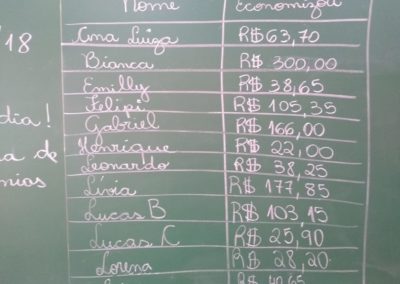 Nome Economizou
/18
Ana Luiza R$ 63,70
Bianca R$ 300,00
Emilly R$ 38,65
Felipi R$ 105,35
dia!
Gabriel R$ 166,00
a de
Henrique R$ 22,00
Leonardo R$ 38,25
nias
Lívia R$ 177,85
Lucas B R$ 103,15
Lucas C R$ 25,90
Lorena R$ 28,20
R$ 40,65